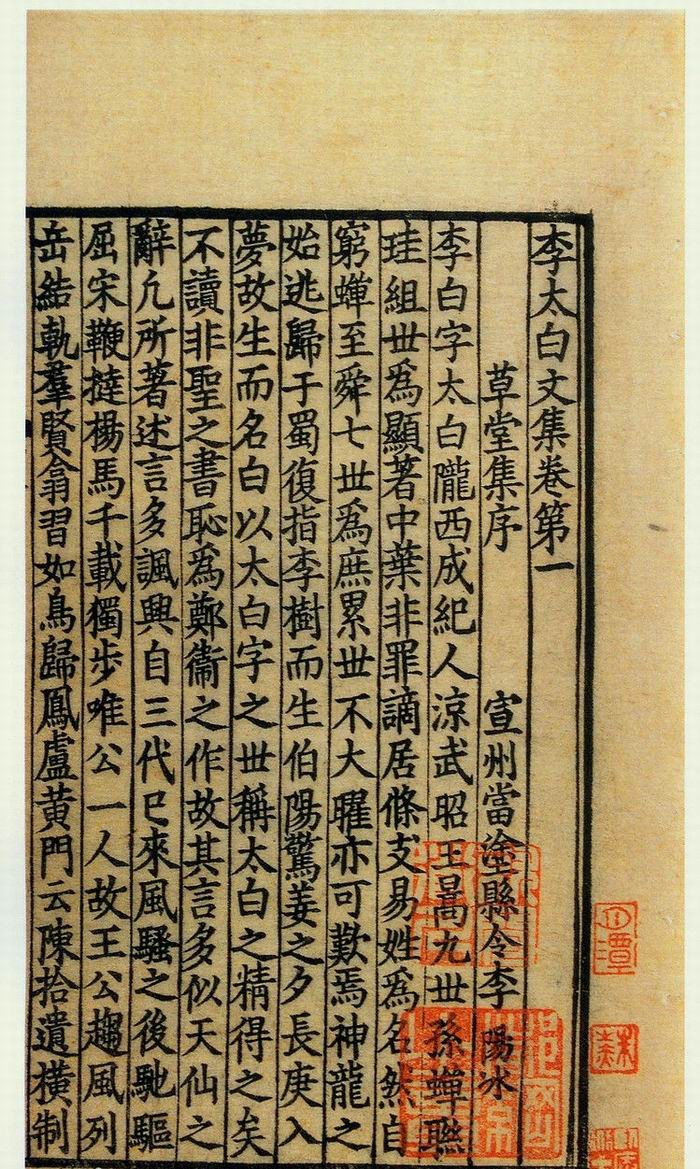 李太白文集卷第一
草堂集序 宣州當塗縣令李陽冰
李白字太白隴西成紀人涼武昭王暠九世孫蟬聯
珪組世爲顯著中葉非罪謫居條支易姓爲名然自
窮蟬至舜七世爲庶累世不大曜亦可歎焉神龍之
始逃歸于蜀復指李樹而生伯陽驚姜之夕長庚入
夢故生而名白以太白字之世稱太白之精得之矣
不讀非聖之書恥爲鄭衞之作故其言多似天仙之
辭凢所著述言多諷興自三代已來風騷之後馳驅
屈宋鞭撻楊馬千載獨步唯公一人故王公趨風列
岳結軌羣賢翕習如鳥歸鳳盧黄門云陳拾遺横制